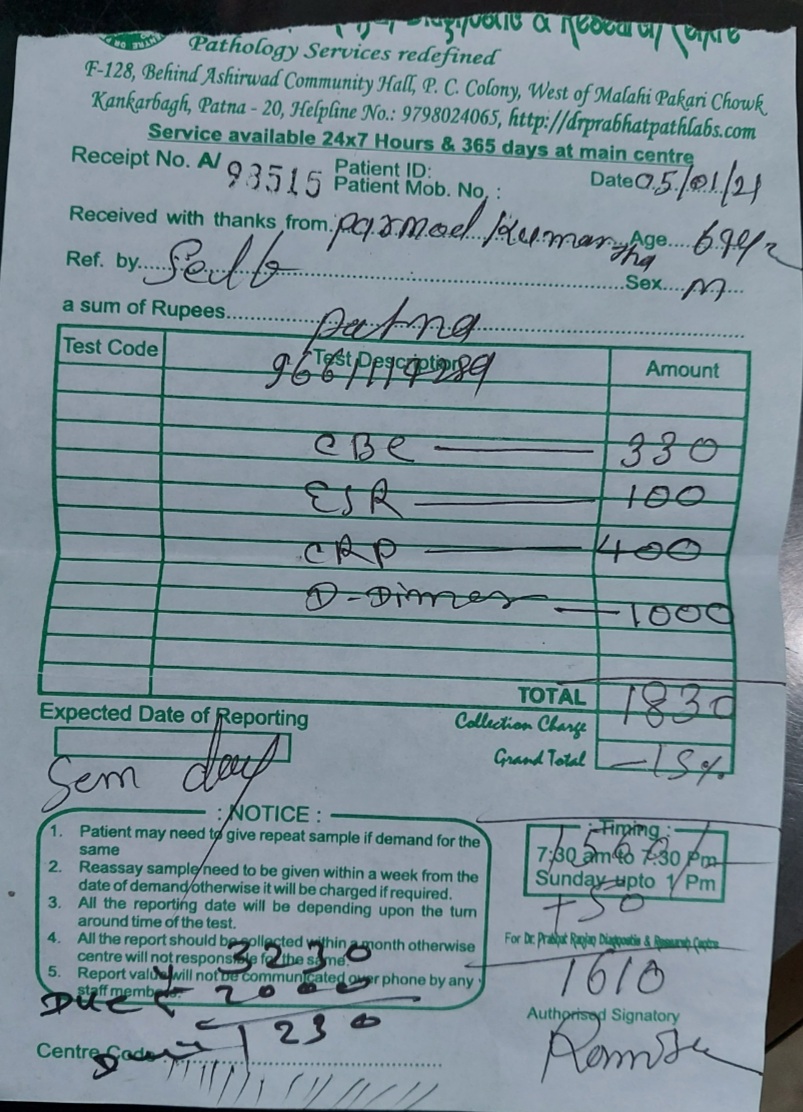 Diagnostic & Research Centre
Pathology Services redefined
F-128, Behind Ashirwad Community Hall, P. C. Colony, West of Malahi Pakari Chowk
Kankarbagh, Patna - 20, Helpline No.: 9798024065, http://drprabhatpathlabs.com
Service available 24x7 Hours & 365 days at main centre
Receipt No. A/ 93515 Patient ID:
Patient Mob. No. :
Date 05/01/21
Received with thanks from Parmod Kumar Jha Age 69y
Ref. by Self Sex M
a sum of Rupees patna
Test Code Test Description Amount
CBC 330
ESR 100
CRP 400
D-Dimer 1000
TOTAL 1830
Expected Date of Reporting
Collection Charge
Grand Total -15%
Sem day
: NOTICE :
1. Patient may need to give repeat sample if demand for the
same
2. Reassay sample need to be given within a week from the
date of demand otherwise it will be charged if required.
3. All the reporting date will be depending upon the turn
around time of the test.
4. All the report should be collected within a month otherwise
centre will not responsible for the same.
5. Report value will not be communicated over phone by any
staff member.
: Timing :
7:30 am to 7:30 Pm
Sunday upto 1 Pm
+50
For Dr. Prabhat Ranjan Diagnostic & Research Centre
1610
Authorised Signatory
3230
Due 2000
1230
Centre Code